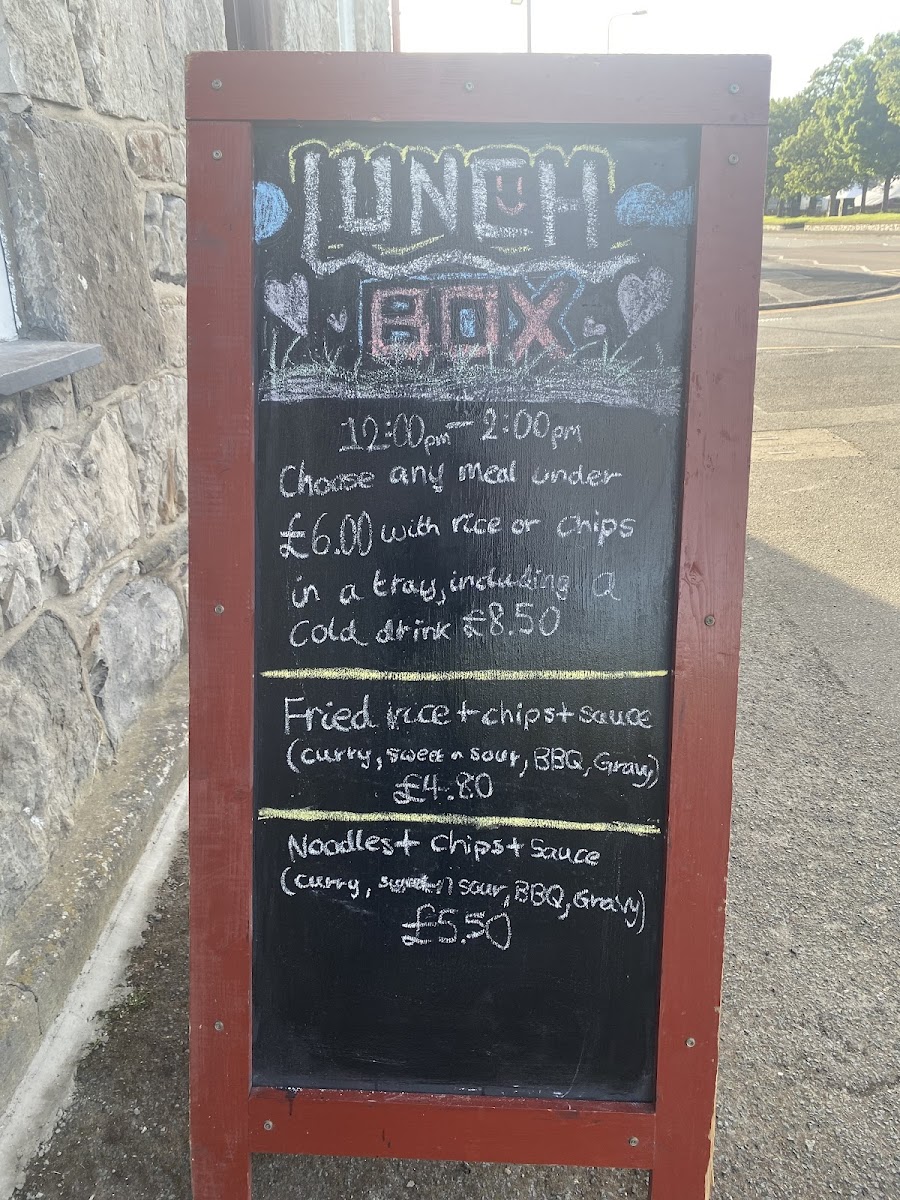 LUNCH
BOX
12:00pm - 2:00pm
Choose any meal under
£6.00 with rice or chips
in a tray, including a
Cold drink £8.50
Fried rice + chips + sauce
(curry, sweet n sour, BBQ, Gravy)
£4.80
Noodles + chips + sauce
(curry, sweet n sour, BBQ, Gravy)
£5.50